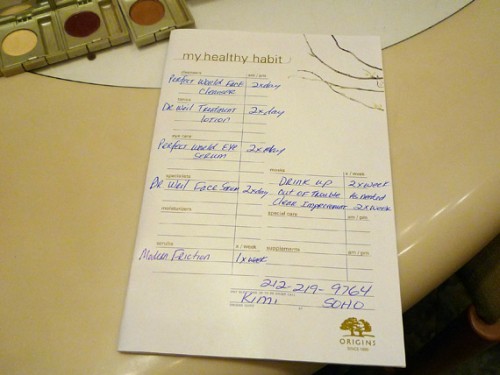 my healthy habit
cleansers am / pm
Perfect World Face 2xday
Cleanser
toners
Dr Weil Treatment 2xday
lotion
eye care
Perfect World Eye 2xday
Serum
specialists
Dr Weil Face Serum 2xday
moisturizers
scrubs x / week
Modern Friction 1xweek
masks x / week
Drink Up 2xweek
Out of Trouble As needed
Clear Improvement 2xweek
special care am / pm
supplements am / pm
212-219-9764
Kimi SOHO
ORIGINS
SINCE 1990